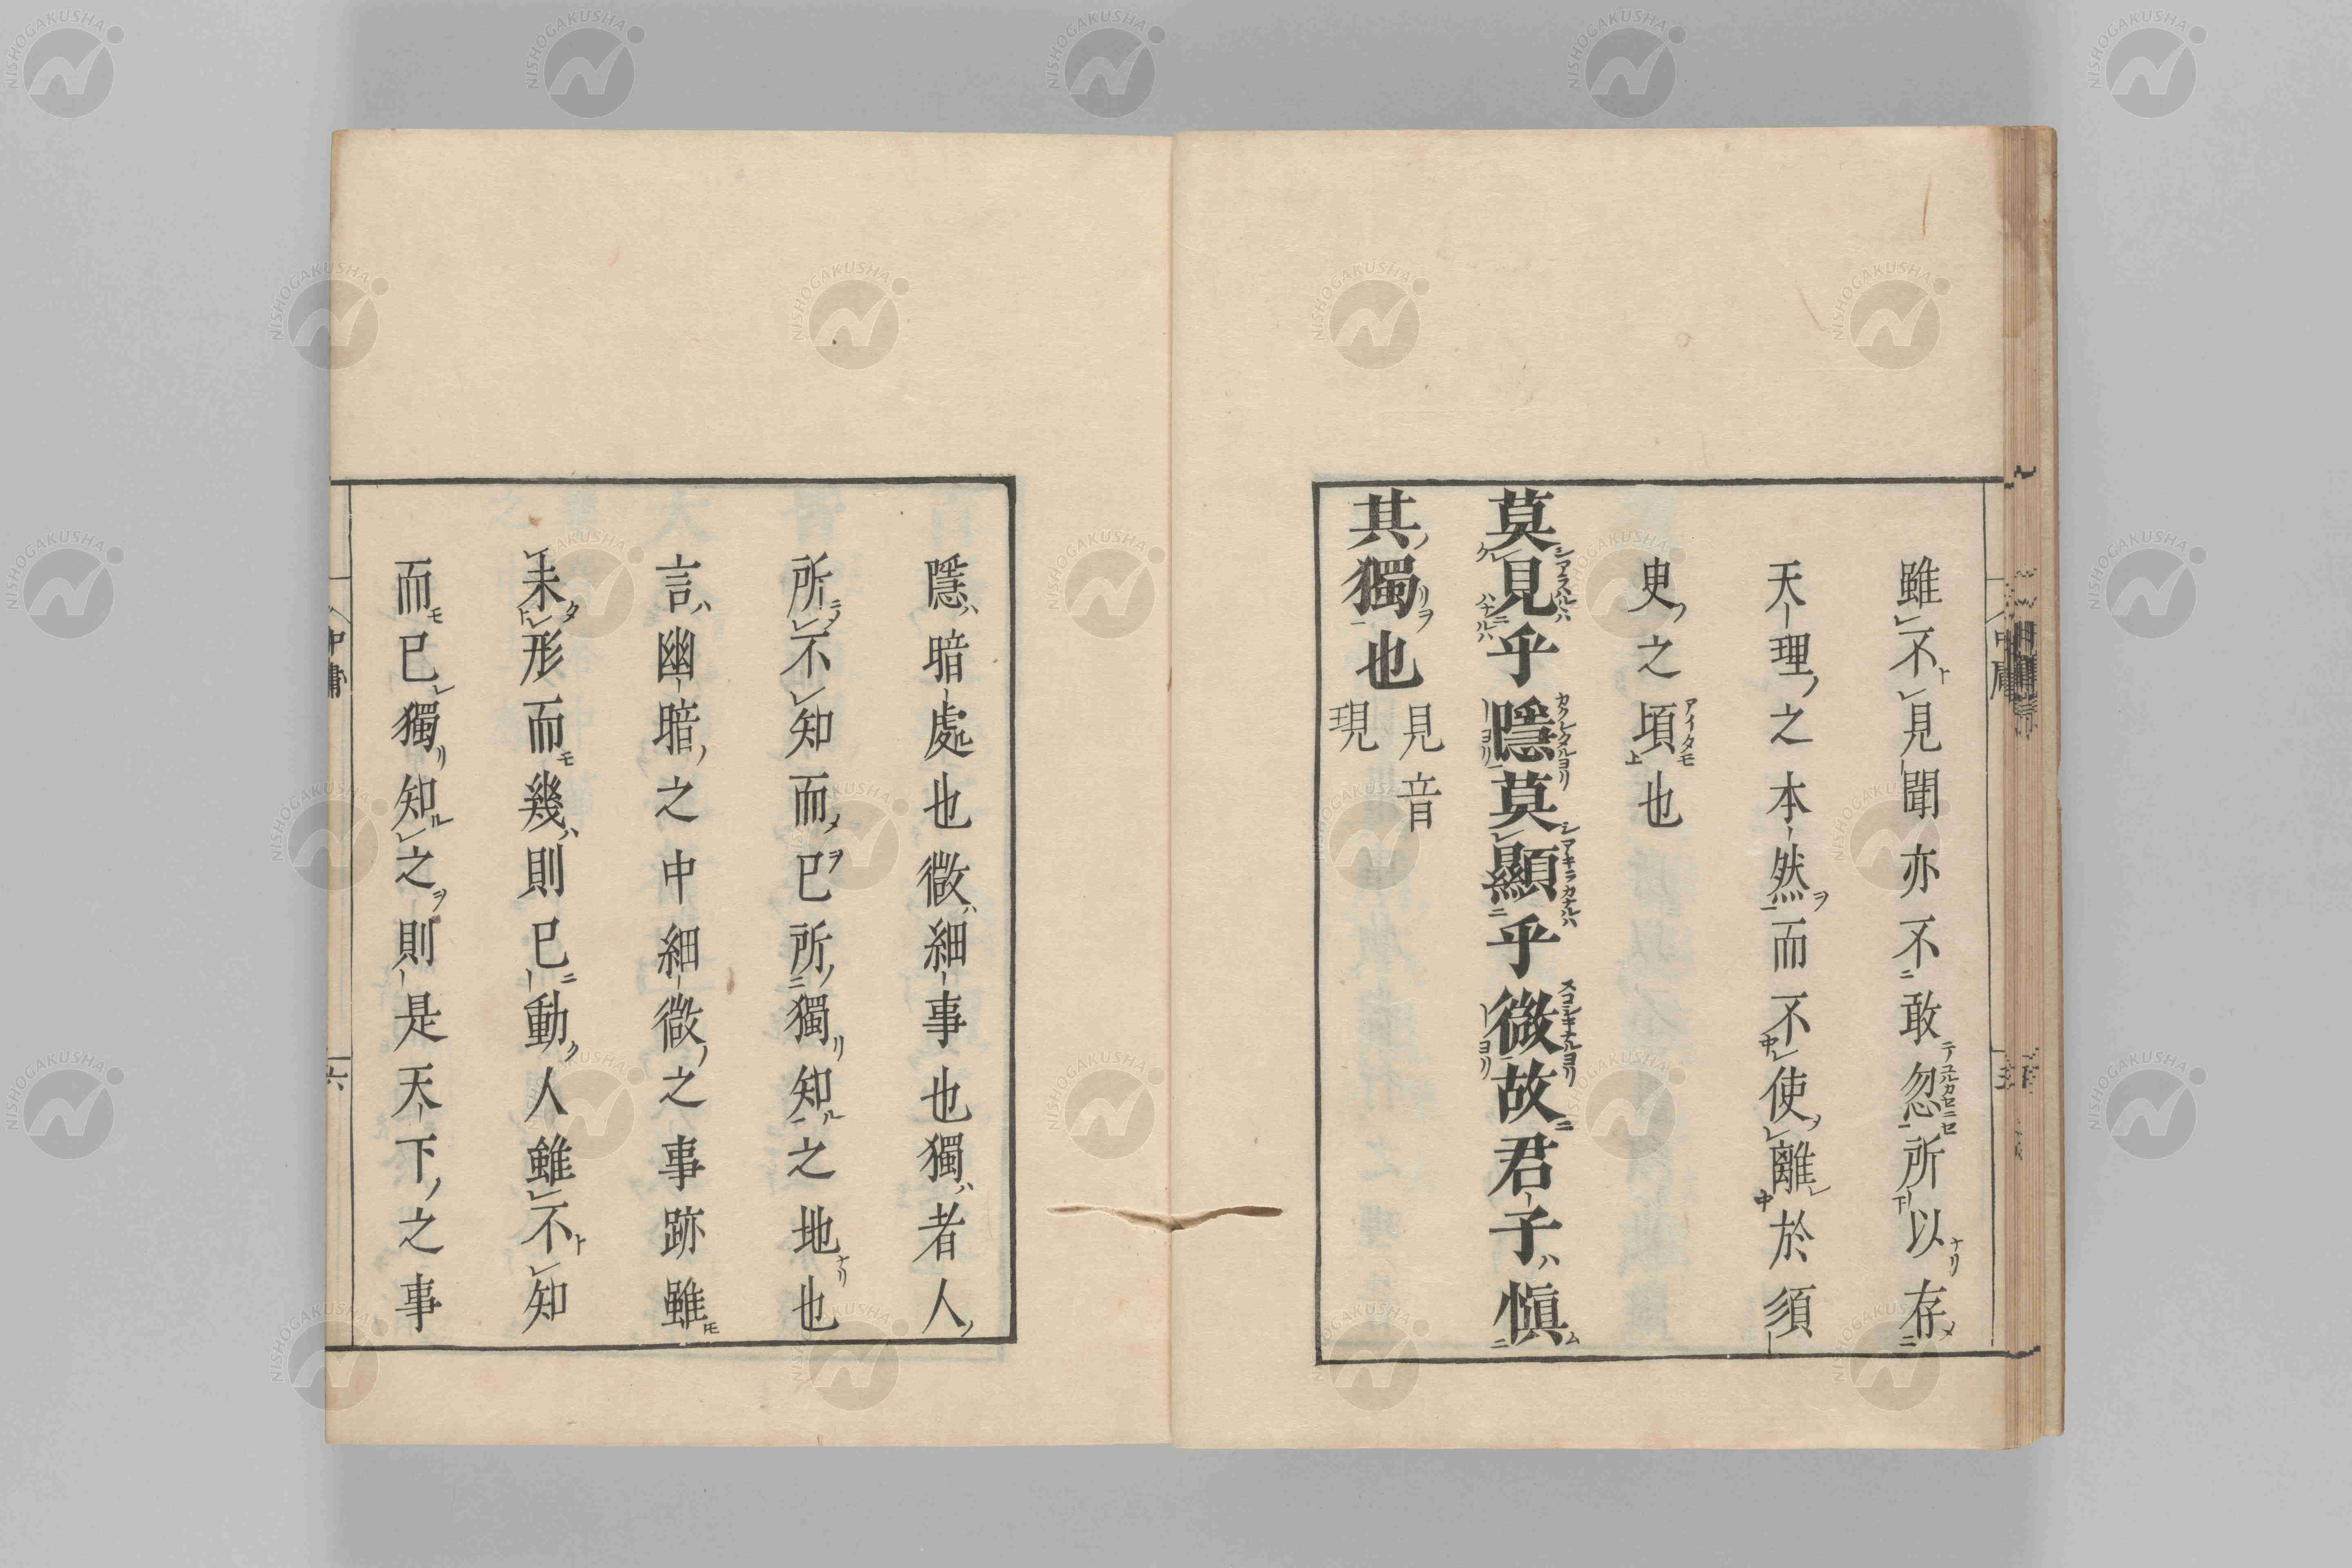 雖不見聞亦不敢忽所以存
天理之本然而不使離於須
臾之頃也
莫見乎隱莫顯乎微故君子愼
其獨也
見音
現
隱暗處也微細事也獨者人
所不知而已所獨知之地也
言幽暗之中細微之事跡雖
未形而幾則已動人雖不知
而已獨知之則是天下之事
中庸
六
NISHOGAKUSHA